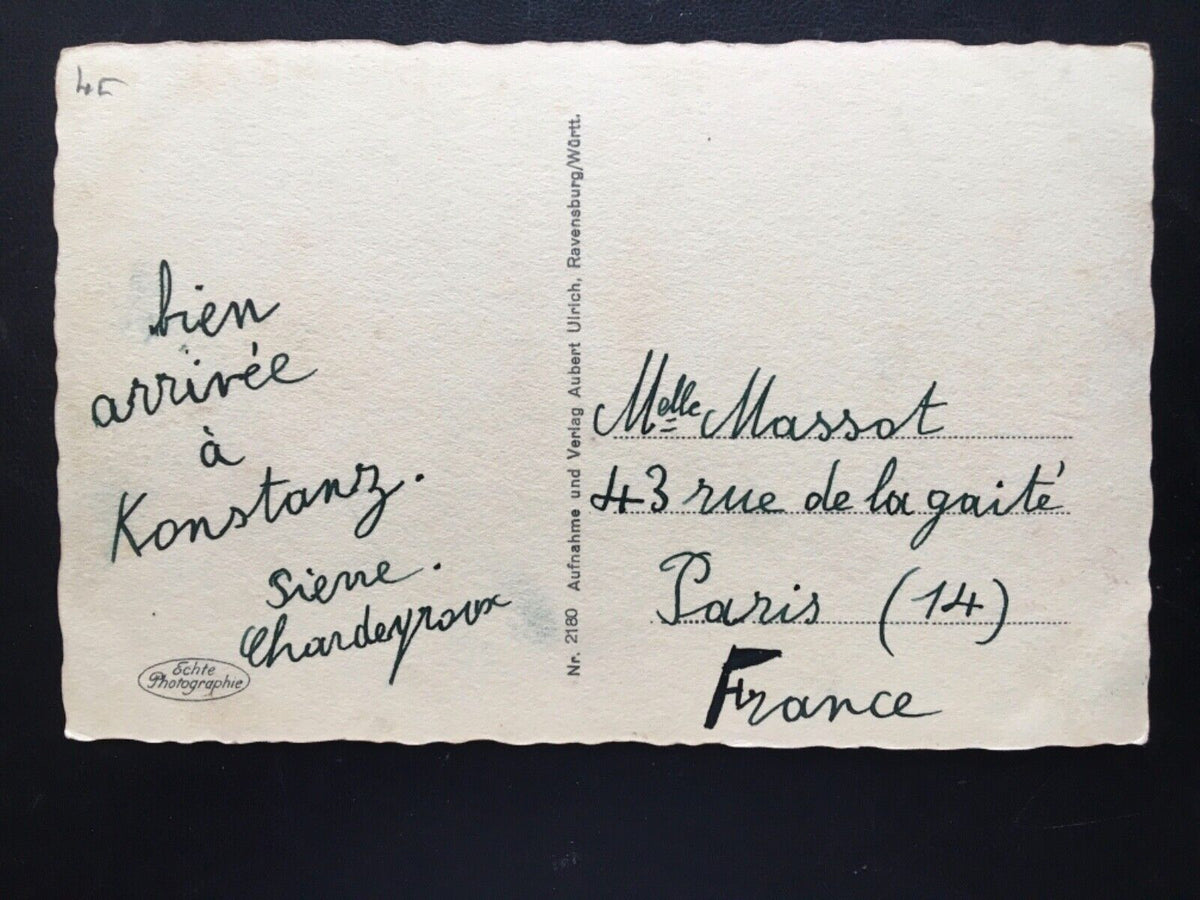 bien
arrivée
à
Konstanz.
Chardeyroux
Echte
Photographie
Nr. 2180 Aufnahme und Verlag Aubert Ulrich, Ravensburg/Württ.
Melle Massot
43 rue de la gaité
Paris (14)
France